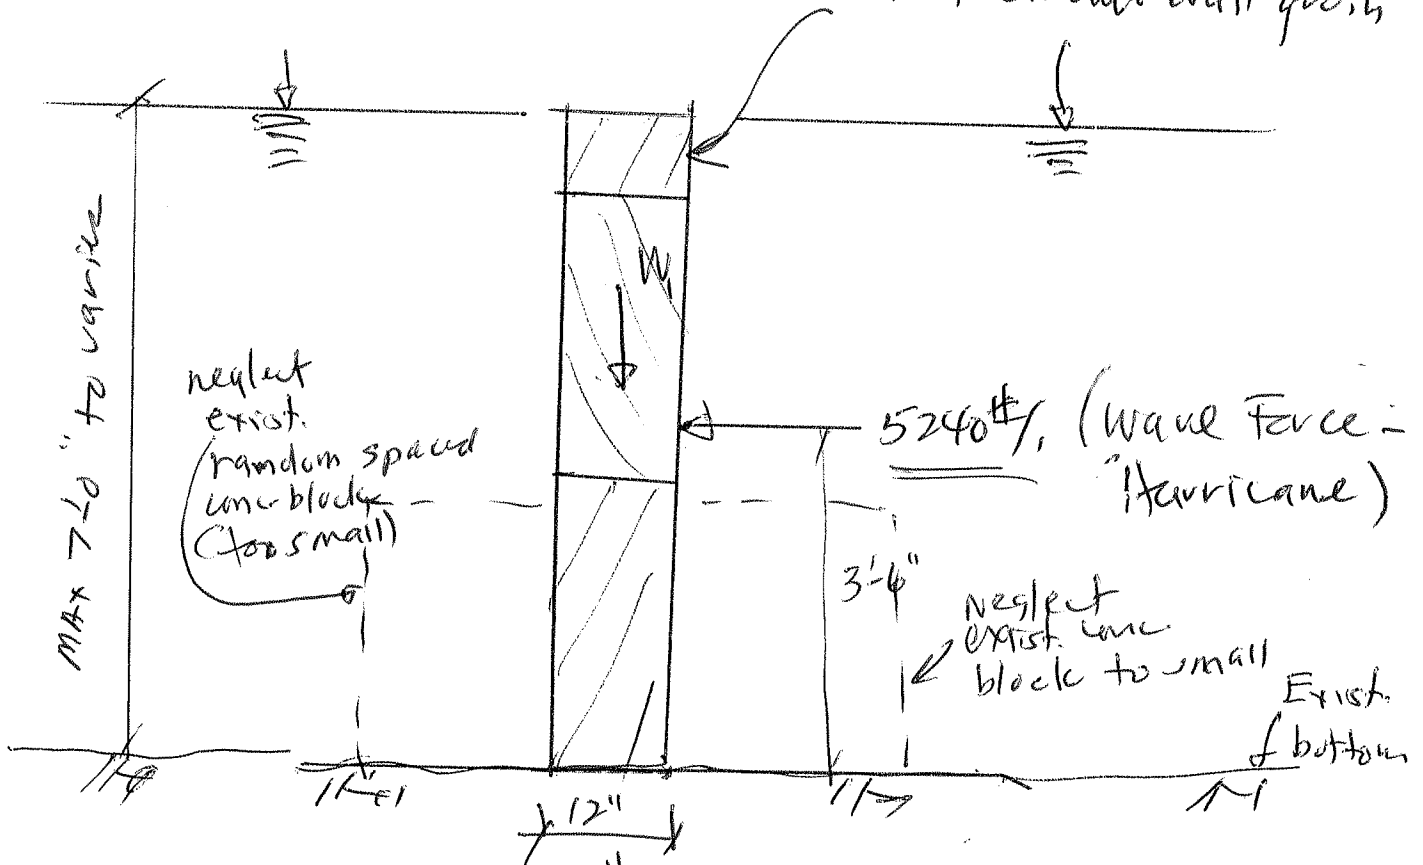 MAX 7'-0" to varies
W1
neglect
exist.
random spaced
conc block
(too small)
5240#/, (Wave Force -
Hurricane)
3'-4"
Neglect
exist. conc.
block to small
Exist.
bottom
12"